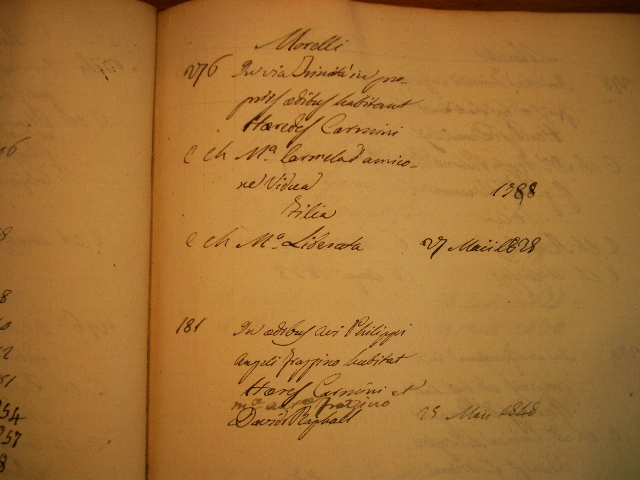 Morelli
276 In via Trinità in pro-
priis ædibus habitant
Hæredes Carmini
C ch Mª Carmela d'amico-
ne Vidua 1788
Filia
C ch Mª Liberata 27 Maii 1828
181 In ædibus avi Philippi
Angeli Frazzino habitat
Hæres Carmini et
Mª Frazzino
David Raphael 25 Maii 1848
54
57